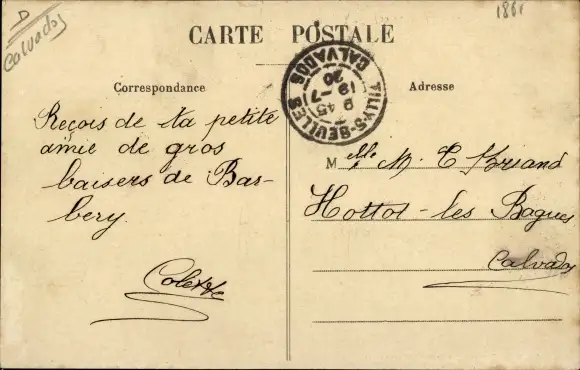 D
Calvados
1861
CARTE POSTALE
TILLY-S-SEULLES
CALVADOS
9 45
19 -7
20
Correspondance
Adresse
Reçois de ta petite
amie de gros
baisers de Bar-
bery.
Colette
Mlle M. T Briand
Hottot-les Bagues
Calvados